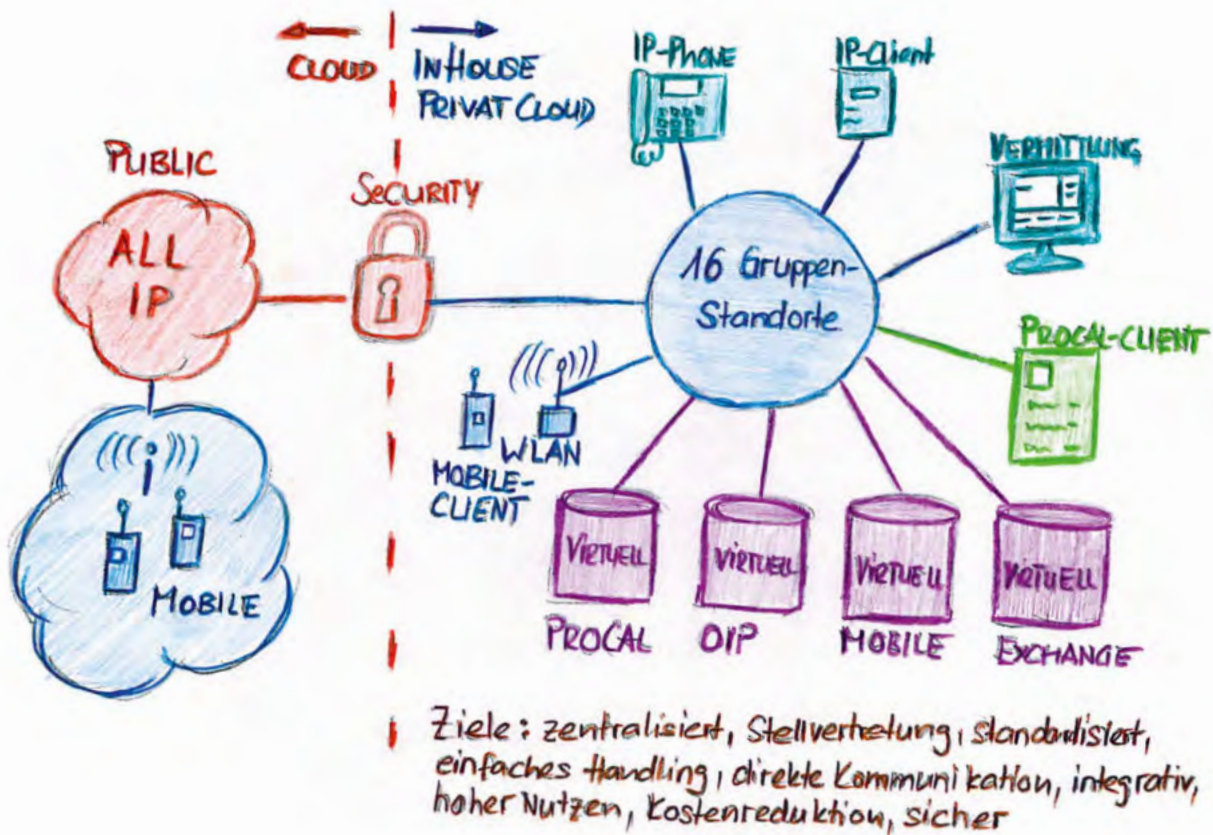 CLOUD
INHOUSE
PRIVAT CLOUD
IP-PHONE
IP-Client
VERMITTLUNG
PUBLIC
ALL
IP
SECURITY
16 Gruppen-
Standorte
PROCAL-CLIENT
WLAN
MOBILE-
CLIENT
MOBILE
VIRTUELL
VIRTUELL
VIRTUELL
VIRTUELL
PROCAL
OIP
MOBILE
EXCHANGE
Ziele: zentralisiert, Stellvertretung, standardisiert,
einfaches Handling, direkte Kommunikation, integrativ,
hoher Nutzen, Kostenreduktion, sicher